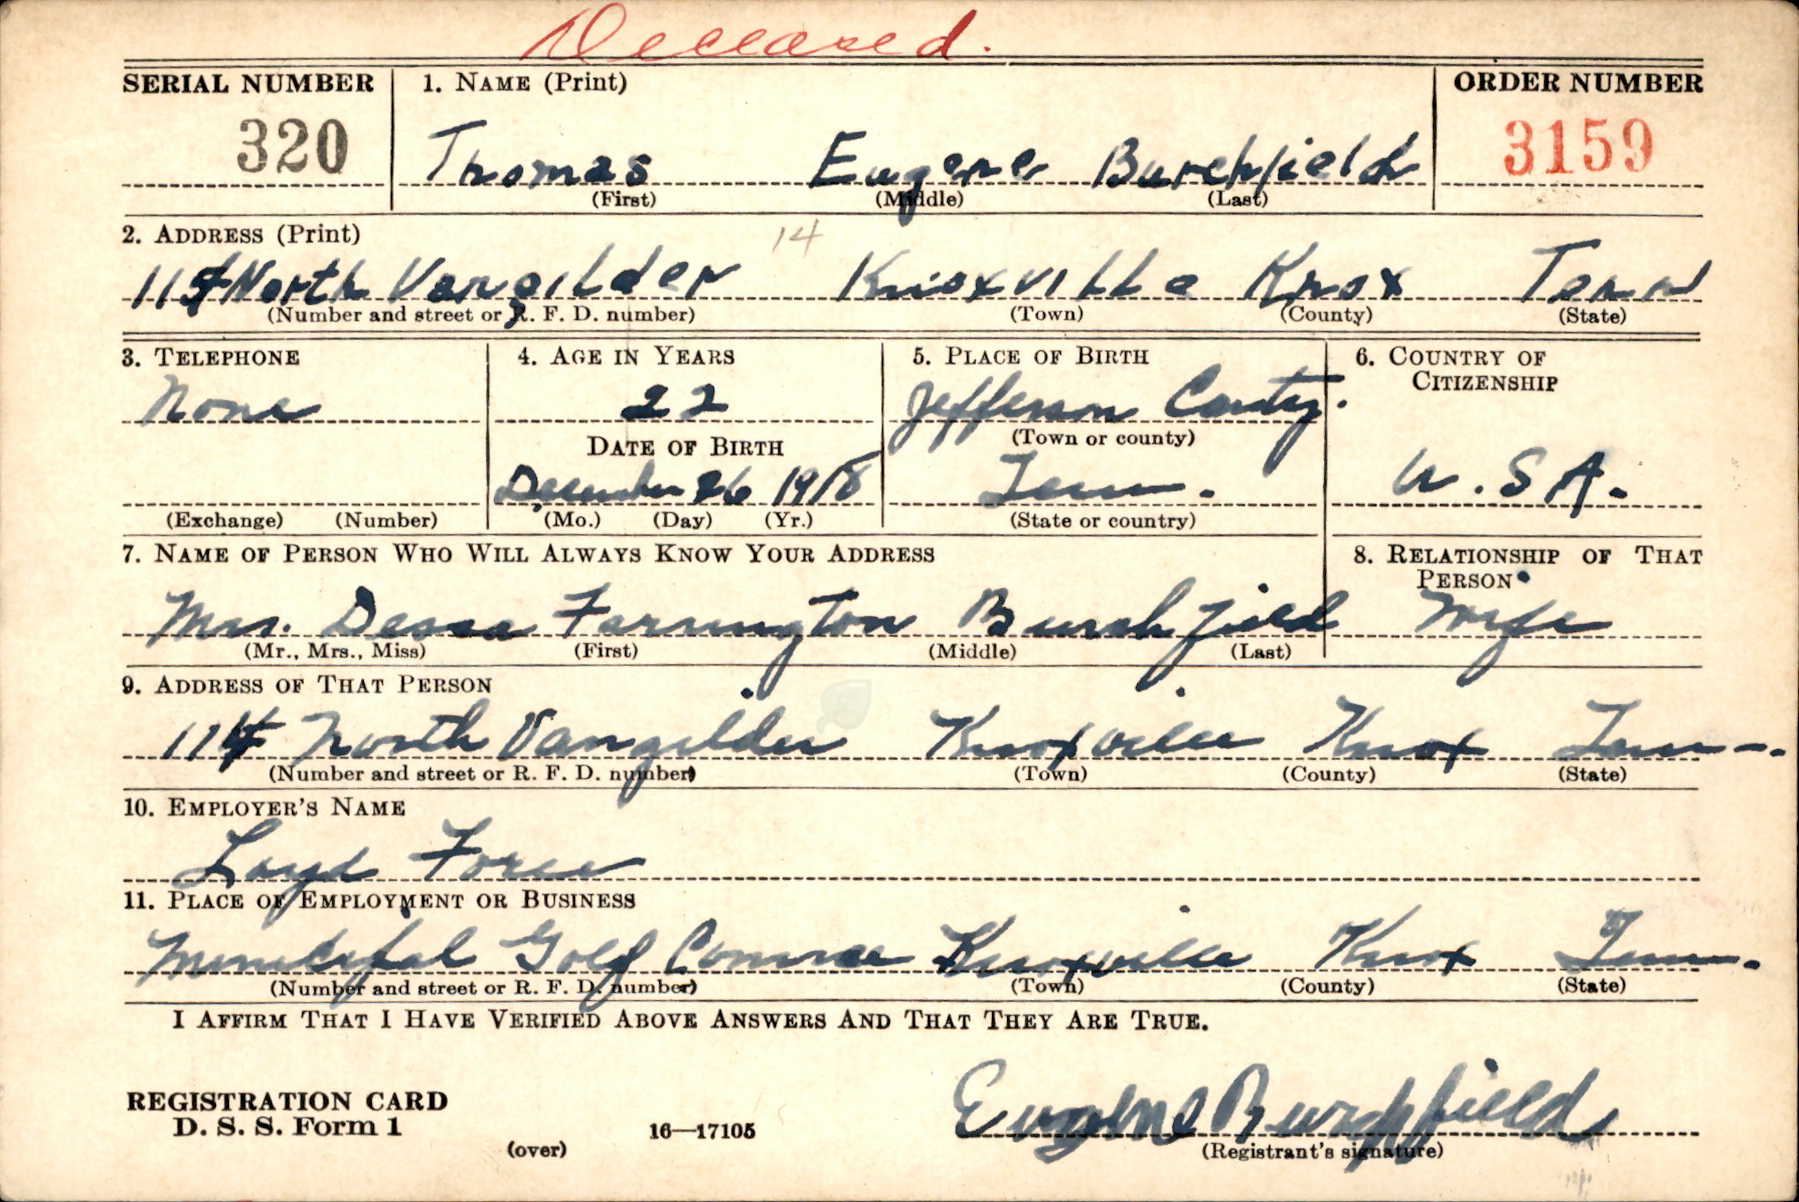 Deceased.
SERIAL NUMBER 1. NAME (Print) ORDER NUMBER
320 Thomas Eugene Burchfield 3159
(First) (Middle) (Last)
2. ADDRESS (Print) 14
114 North Vangilder Knoxville Knox Tenn
(Number and street or R. F. D. number) (Town) (County) (State)
3. TELEPHONE 4. AGE IN YEARS 5. PLACE OF BIRTH 6. COUNTRY OF CITIZENSHIP
None 22 Jefferson Conty.
DATE OF BIRTH (Town or county)
December 26 1918 Tenn. U.S.A.
(Exchange) (Number) (Mo.) (Day) (Yr.) (State or country)
7. NAME OF PERSON WHO WILL ALWAYS KNOW YOUR ADDRESS 8. RELATIONSHIP OF THAT PERSON
Mrs. Dessa Farrington Burchfield Wife
(Mr., Mrs., Miss) (First) (Middle) (Last)
9. ADDRESS OF THAT PERSON
114 North Vangilder Knoxville Knox Tenn.
(Number and street or R. F. D. number) (Town) (County) (State)
10. EMPLOYER'S NAME
Loyd Force
11. PLACE OF EMPLOYMENT OR BUSINESS
Municipal Golf Course Knoxville Knox Tenn.
(Number and street or R. F. D. number) (Town) (County) (State)
I AFFIRM THAT I HAVE VERIFIED ABOVE ANSWERS AND THAT THEY ARE TRUE.
Eugene Burchfield
REGISTRATION CARD
D. S. S. Form 1
(over) 16—17105 (Registrant's signature)